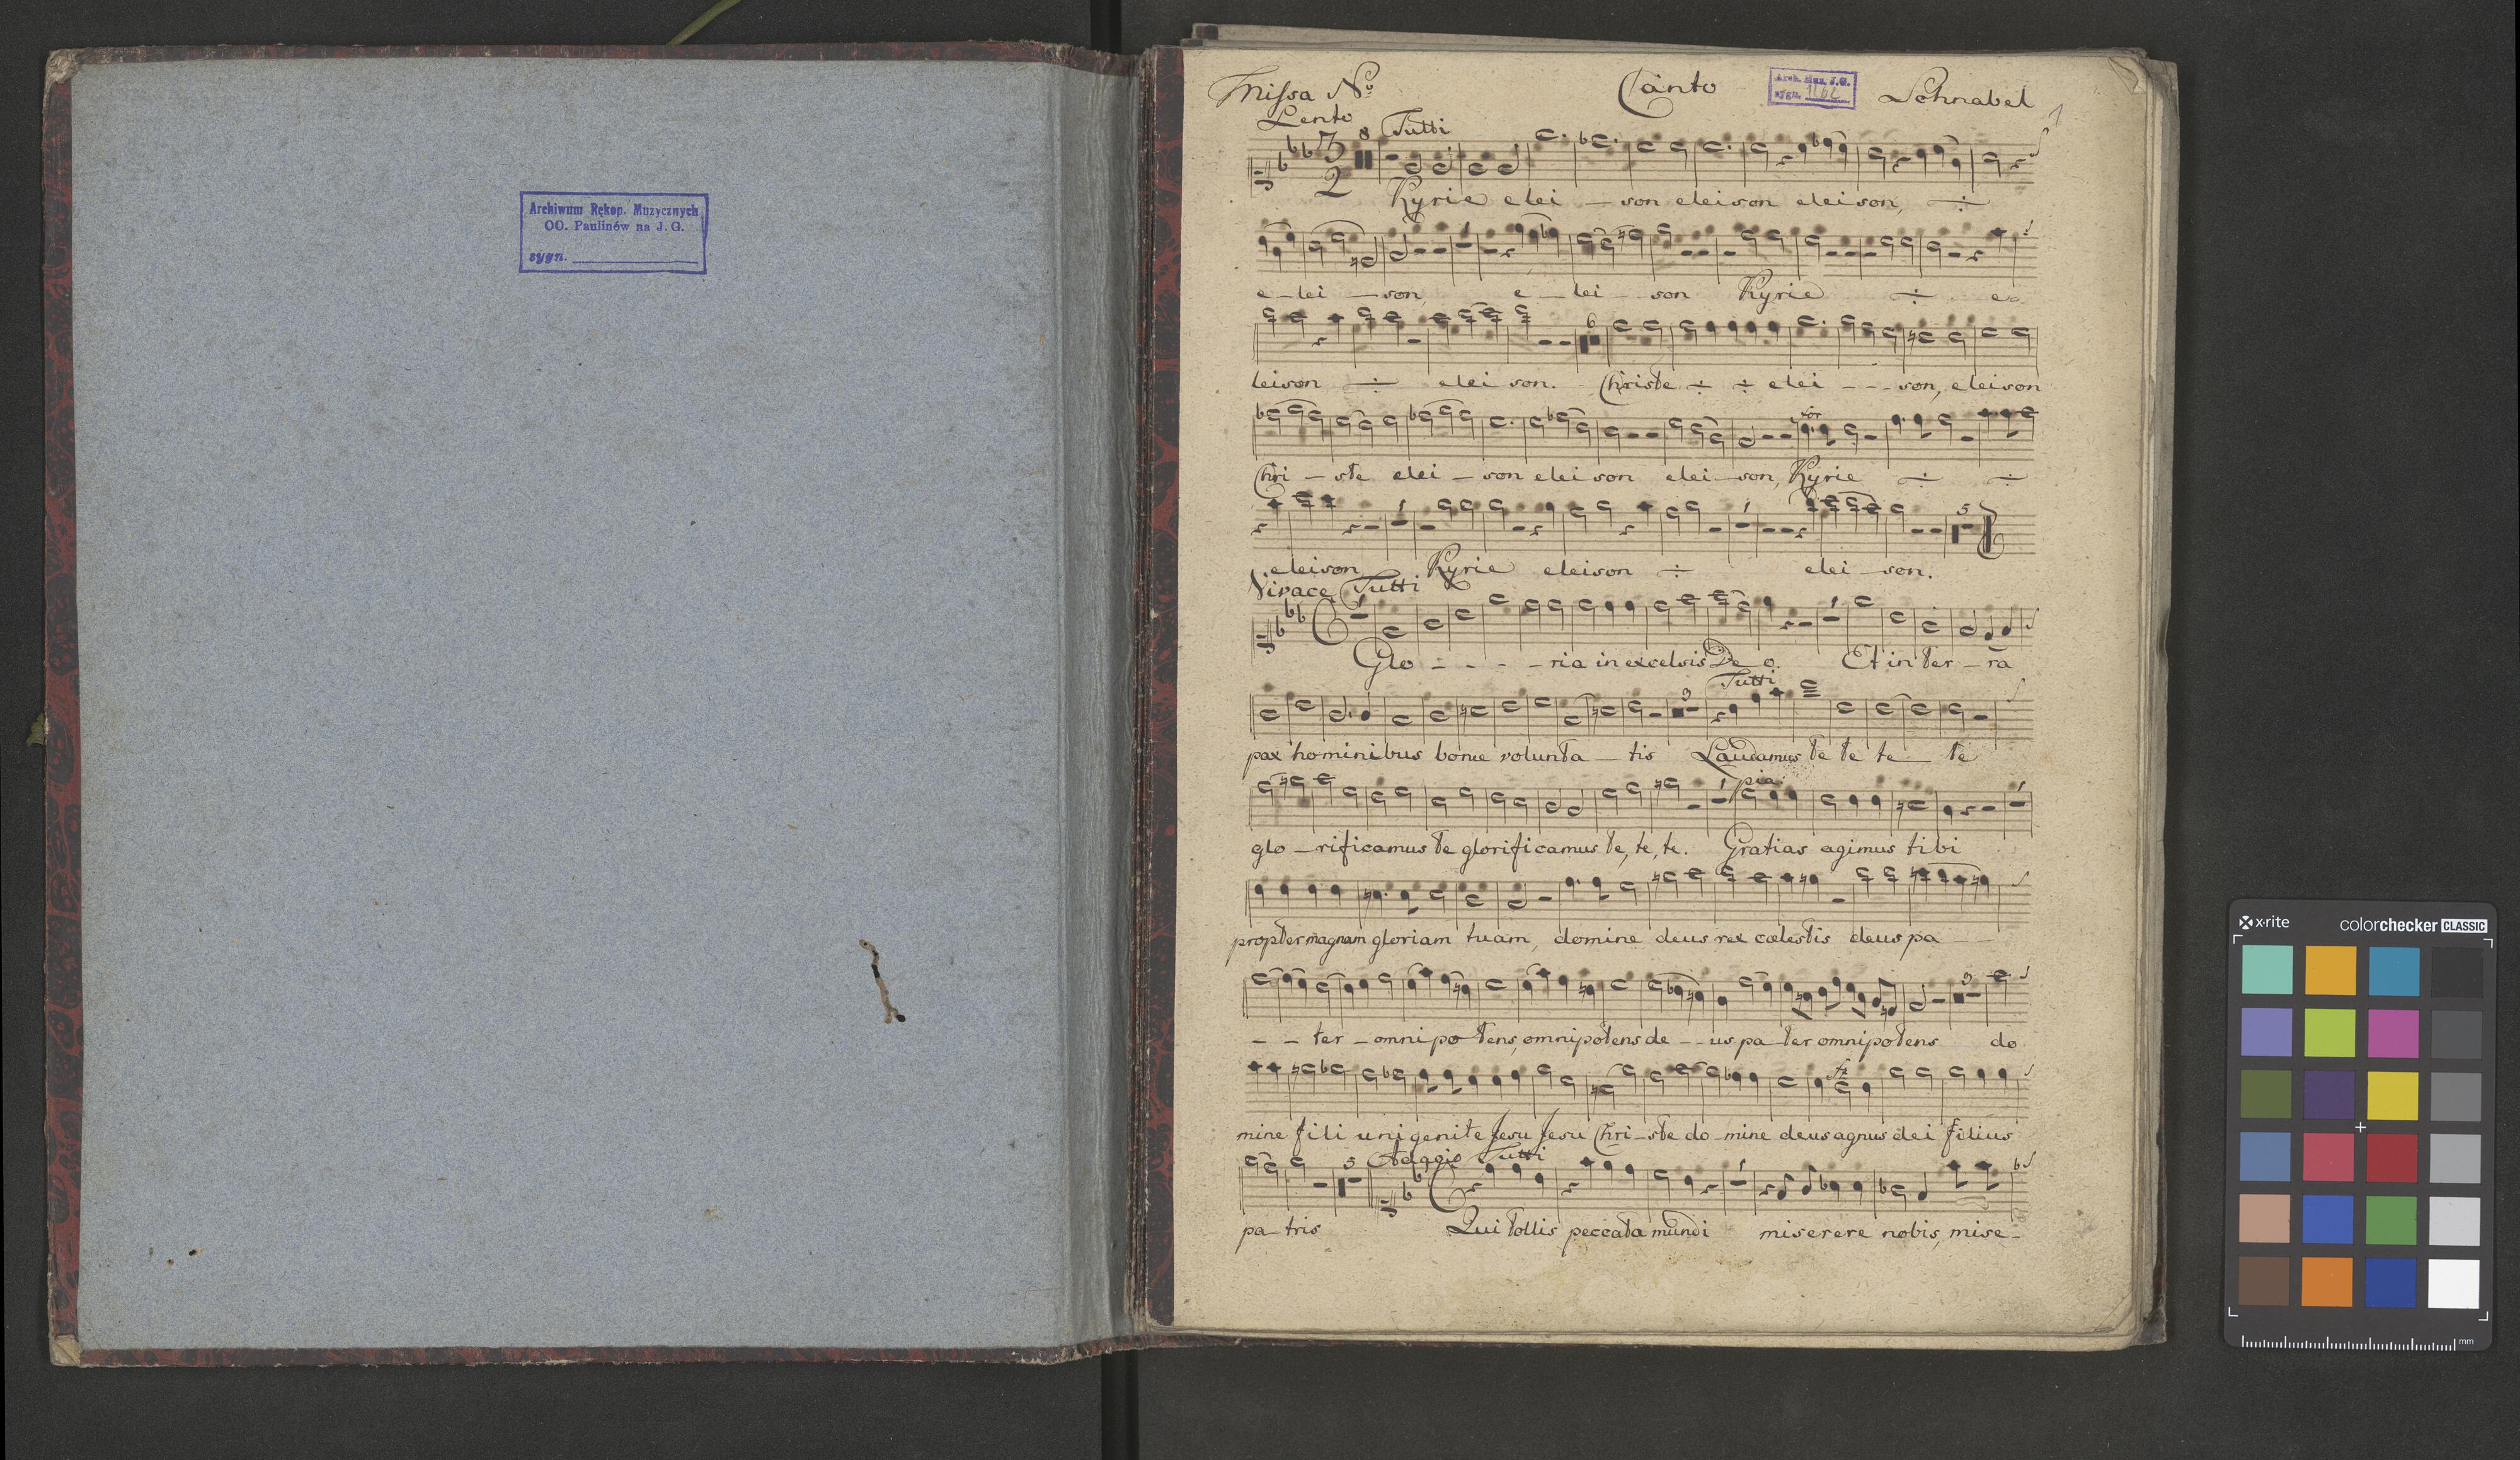 Archiwum Rękop. Muzycznych
OO. Paulinów na J. G.
sygn.
Missa No
Canto
Arch. Muz. J.G.
sygn.
Schnabel
1
Lento
8 Tutti
3
2
Kyrie elei - son eleison eleison, ÷
e - lei - son, e - lei - son Kyrie ÷ e
6
leison ÷ elei son. Christe ÷ ÷ elei - - - son, eleison
Chri - ste elei - son eleison elei - son, Kyrie ÷ ÷
1 1 5
eleison Kyrie eleison ÷ elei son.
Vivace Tutti
1 1
Glo - - - - ria in excelsis De o. Et in ter - ra
3 Tutti
pax hominibus bonae volunta - tis Laudamus te te te - te
1 pia: 1
glo - rificamus te glorificamus te, te, te. Gratias agimus tibi
propter magnam gloriam tuam, domine deus rex coelestis deus pa -
3
- - ter - omnipotens, omnipotens de - - us pa - ter omnipotens do
mine fili unigenite Jesu Jesu Chri - ste do - mine deus agnus dei filius
5 Adagio Tutti 1
pa - tris Qui tollis peccata mundi miserere nobis, mise -
x·rite colorchecker CLASSIC
mm